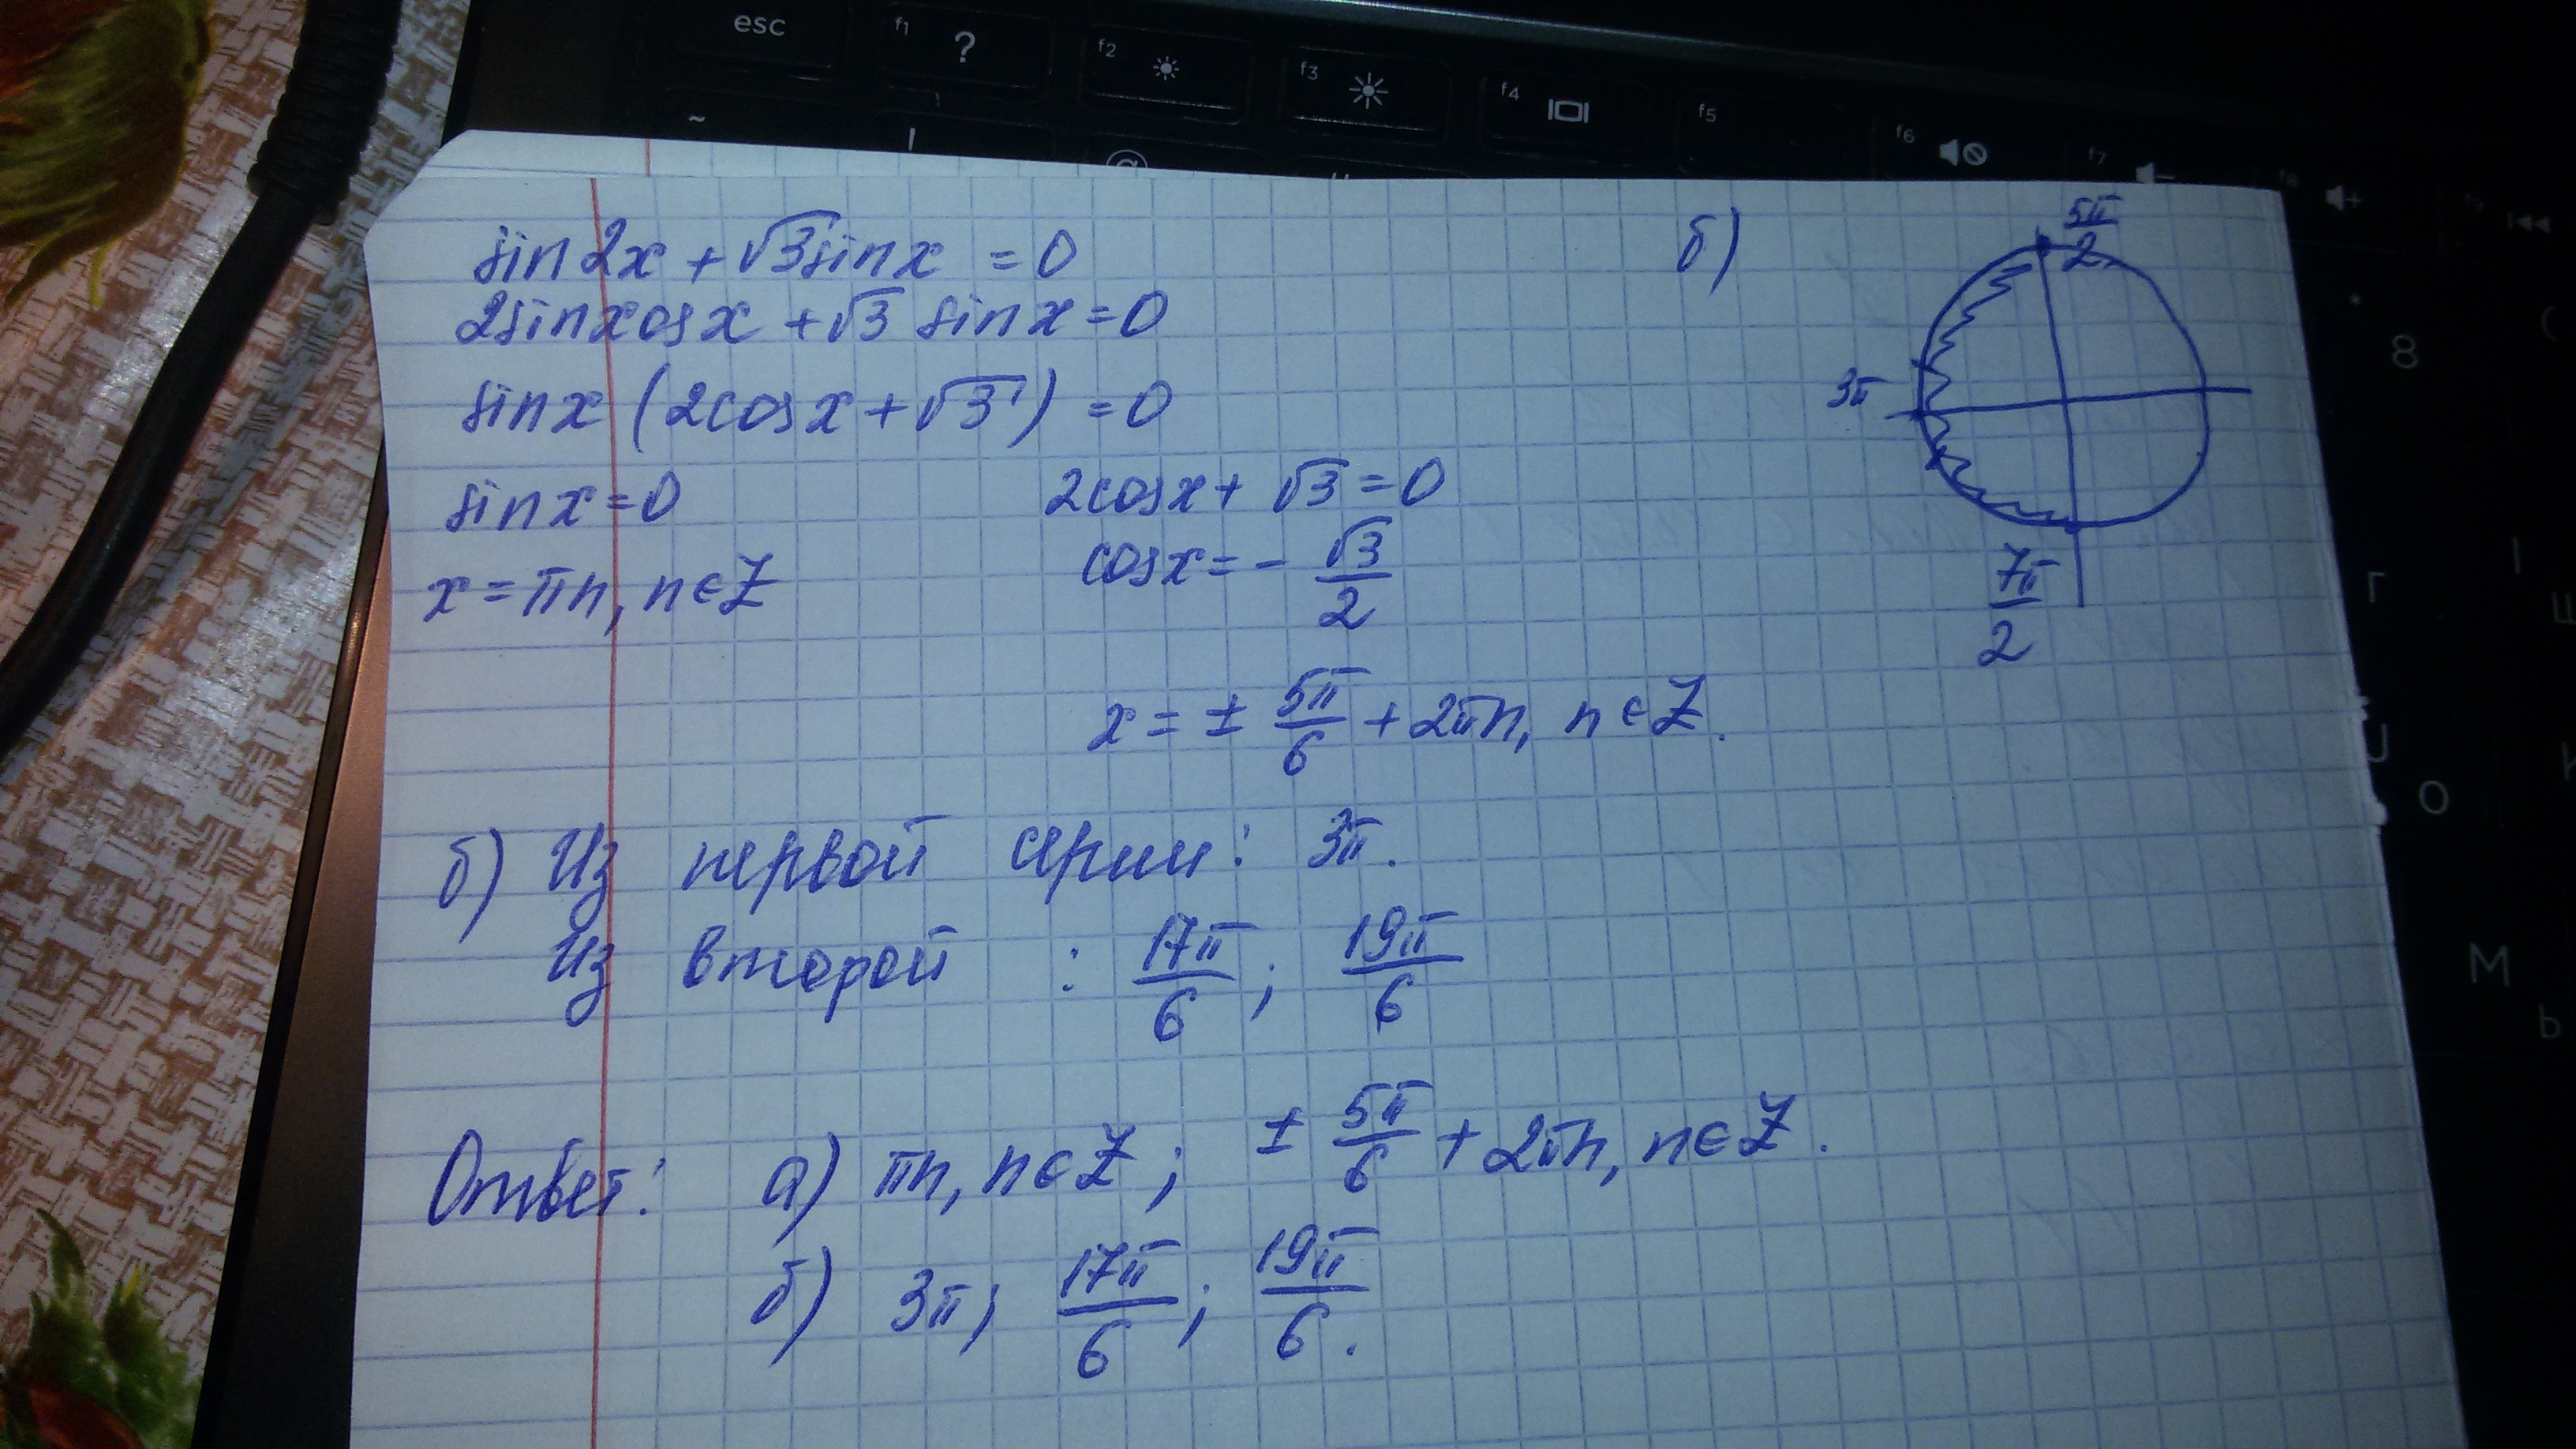 esc f1 ? f2 f3 f4 f5 f6 f7 f8 f9
~ ! @
8
Г
О
М
Ь
sin2x + √3sinx = 0
2sinxcosx + √3 sinx = 0
sinx (2cosx + √3) = 0
sinx = 0 2cosx + √3 = 0
x = πn, n∈Z cosx = - √3/2
x = ± 5π/6 + 2πn, n∈Z.
б)
5π/2
3π
7π/2
б) Из первой серии: 3π.
Из второй : 17π/6 ; 19π/6
Ответ: а) πn, n∈Z ; ± 5π/6 + 2πn, n∈Z.
б) 3π; 17π/6 ; 19π/6 .